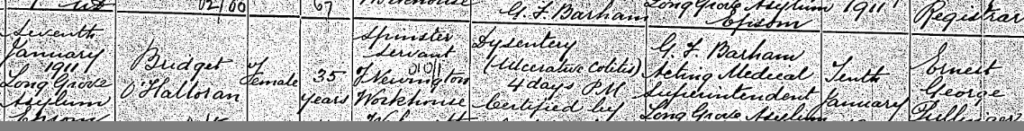 67 Workhouse G. F. Barham Long Grove Asylum 1911 Registrar
Epsom
Seventh
January
1911
Long Grove
Asylum
Bridget
O'Halloran
Female
35
years
Spinster
Servant
of Newington
Workhouse
Dysentery
(Ulcerative Colitis)
4 days PM
Certified by
G. F. Barham
Acting Medical
Superintendent
Long Grove Asylum
Tenth
January
Ernest
George